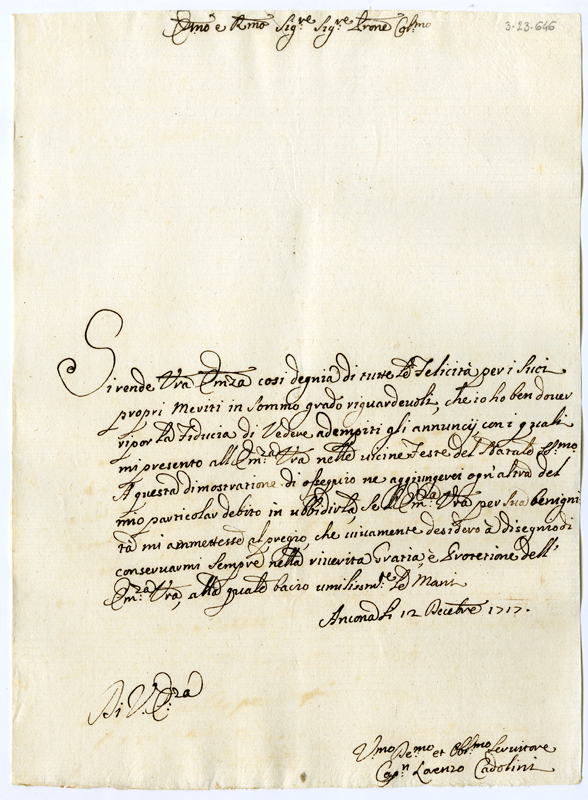 Emo e Rmo Sigre Sigre Prone Colmo
3-23-646
Si rende Vra Emza così degnia di tutte Le Felicità per i Suoi
propri Meriti in Sommo grado riguardeuoli, che io ho ben douer
ripor La Fiducia di Vedere adempiti gli annuncij con i quali
mi presento all'Em:za Vra nelle uicine Feste del Natale
A questa dimostratione di ossequio ne aggiungerei ogn'altra del
mio particolar debito in ubbidirla, se l'Em:za Vra per sua benigni
tà mi ammettesse al pregio, che uiuamente desidero à disegnio di
conseruarmi sempre nella riuerita Gratia, e Protetione dell'
Em:za Vra, alla quale bacio umilissmte Le Mani
Ancona Li 12 Dicebre 1717.
Di V. E:za
Vmo Demo et Oblmo Seruitore
Capn Lorenzo Cadolini